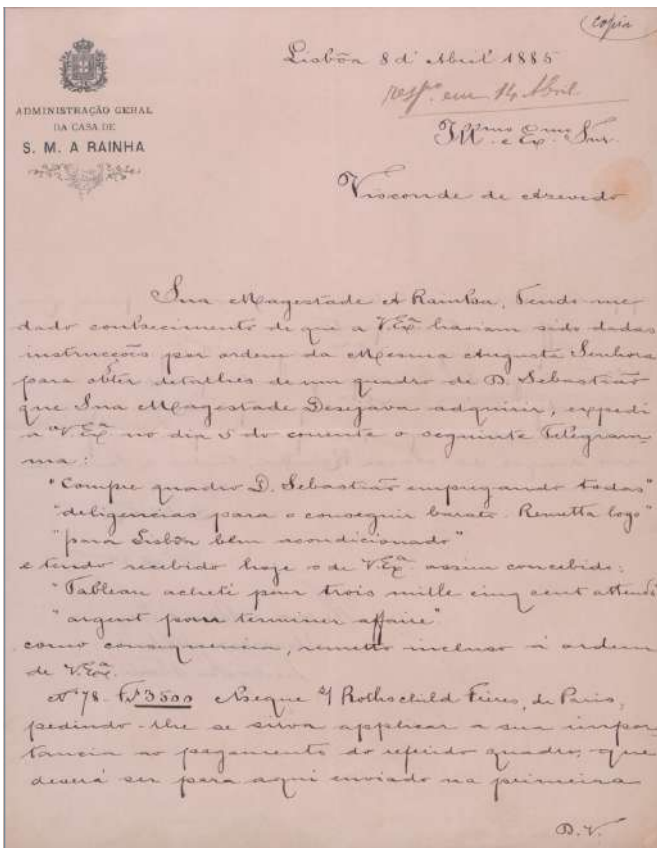 (copia
Lisbôa 8 d'Abril 1885
resp.º em 14 Abril
ADMINISTRAÇÃO GERAL
DA CASA DE
S. M. A RAINHA
Ill.mo e Ex.mo Snr.
Visconde de Azevedo
Sua Magestade A Rainha, tendo me
dado conhecimento de que a V.Exª haviam sido dadas
instrucções por ordem da Mesma Augusta Senhora
para obter detalhes de um quadro de D. Sebastião
que Sua Magestade Desejava adquirir, expedi
a V.Exª no dia 5 do corrente o seguinte Telegram-
ma:
"Compre quadro D. Sebastião empregando todas"
"deligencias para o conseguir barato. Remetta logo"
"para Lisbôa bem acondicionado"
e tendo recebido hoje o de V.Exª assim concebido:
"Tableau acheté pour trois mille cinq cent attends
"argent pour terminer affaire"
como consequencia, remetto incluso á ordem
de V.Exª
Nº 78. Fs 3500 Cheque s/ Rothschild Frères, de Paris,
pedindo-lhe se sirva applicar a sua impor-
tancia ao pagamento do referido quadro, que
deverá ser para aqui enviado na primeira